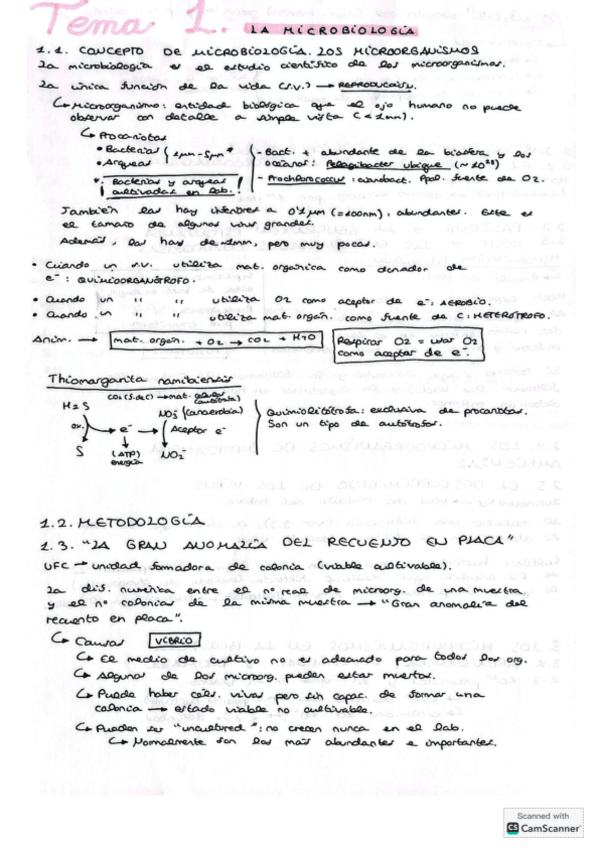 Tema 1. LA MICROBIOLOGÍA
1.1. CONCEPTO DE MICROBIOLOGÍA. LOS MICROORGANISMOS
La microbiología es el estudio científico de los microorganismos.
La única función de la vida (s.v.) → REPRODUCCIÓN.
↳ Microorganismo: entidad biológica que el ojo humano no puede
observar con detalle a simple vista (< 1mm).
↳ Procariotas
• Bacterias
• Arqueas
(1μm-5μm *
* Bacterias y arqueas
cultivadas en lab.
- Bact. + abundante de la biosfera y los
océanos: Pelagibacter ubique (≈ 10²⁸)
- Prochlorococcus: cianobact. Ppal. fuente de O2.
También las hay inferiores a 0'1 μm (=100nm), abundantes. Este es
el tamaño de algunos virus grandes.
Además, las hay de 1mm, pero muy pocas.
• Cuando un s.v. utiliza mat. orgánica como donador de
e⁻: QUIMIOORGANÓTROFO.
• Cuando un " " utiliza O2 como aceptor de e⁻: AEROBIO.
• Cuando un " " utiliza mat. orgán. como fuente de C: HETERÓTROFO.
Anim. → mat. orgán. + O2 → CO2 + H2O
Respirar O2 = usar O2
como aceptor de e⁻.
Thiomargarita namibiensis
CO2 (f. de C) → mat. orgán.
H2S
NO3⁻ (anaerobia)
ox.
e⁻ → Aceptor e⁻
S
(ATP)
energía
NO2⁻
Quimiolitótrofa: exclusiva de procariotas.
Son un tipo de autótrofos.
1.2. METODOLOGÍA
1.3. "LA GRAN ANOMALÍA DEL RECUENTO EN PLACA"
UFC → unidad formadora de colonia (viable cultivable).
La dis. numérica entre el nº real de microorg. de una muestra
y el nº colonias de la misma muestra → "Gran anomalía del
recuento en placa".
↳ Causas
↳ El medio de cultivo no es adecuado para todos los org.
↳ Algunos de los microorg. pueden estar muertos.
↳ Puede haber céls. vivas pero sin capac. de formar una
colonia → estado viable no cultivable.
↳ Pueden ser "uncultured": no crecen nunca en el lab.
↳ Normalmente son los más abundantes e importantes.
Scanned with
CS CamScanner